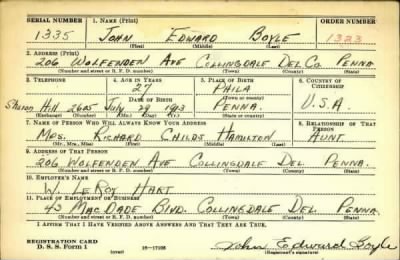 SERIAL NUMBER 1. NAME (Print) ORDER NUMBER
1335 JOHN EDWARD BOYLE 1323
(First) (Middle) (Last)
2. ADDRESS (Print)
206 WOLFENDEN AVE COLLINGDALE DEL CO. PENNA
(Number and street or R. F. D. number) (Town) (County) (State)
3. TELEPHONE 4. AGE IN YEARS 5. PLACE OF BIRTH 6. COUNTRY OF CITIZENSHIP
27 PHILA
DATE OF BIRTH (Town or county)
Sharon Hill 2605 July 29 1913 PENNA. U.S.A
(Exchange) (Number) (Mo.) (Day) (Yr.) (State or country)
7. NAME OF PERSON WHO WILL ALWAYS KNOW YOUR ADDRESS 8. RELATIONSHIP OF THAT PERSON
MRS. RICHARD CHILDS HAMILTON AUNT
(Mr., Mrs., Miss) (First) (Middle) (Last)
9. ADDRESS OF THAT PERSON
206 WOLFENDEN AVE COLLINGDALE DEL. PENNA.
(Number and street or R. F. D. number) (Town) (County) (State)
10. EMPLOYER'S NAME
W. LEROY HART
11. PLACE OF EMPLOYMENT OR BUSINESS
43 MACDADE BLVD. COLLINGDALE DEL. PENNA.
(Number and street or R. F. D. number) (Town) (County) (State)
I AFFIRM THAT I HAVE VERIFIED ABOVE ANSWERS AND THAT THEY ARE TRUE.
REGISTRATION CARD
D. S. S. Form 1 (over) 16—17105 John Edward Boyle
(Registrant's signature)